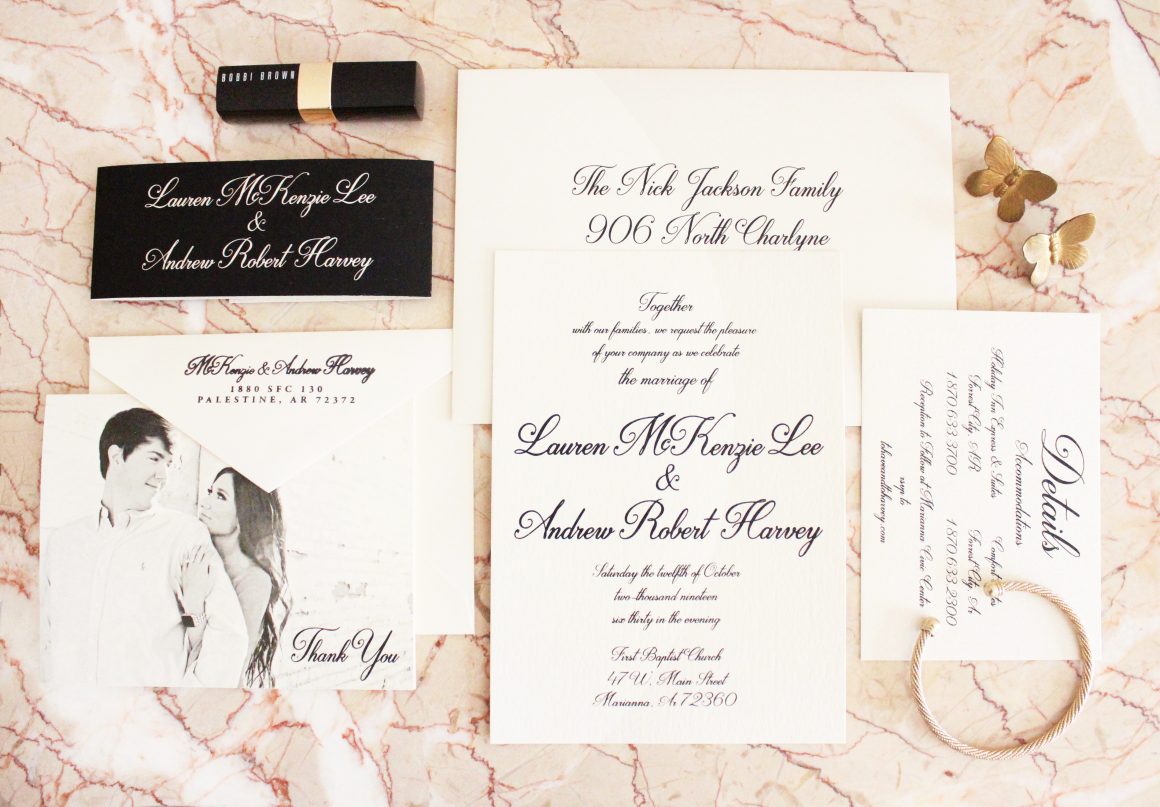 BOBBI BROWN
Lauren McKenzie Lee
&
Andrew Robert Harvey
The Nick Jackson Family
906 North Charlyne
McKenzie & Andrew Harvey
1880 SFC 130
PALESTINE, AR 72372
Thank You
Together
with our families, we request the pleasure
of your company as we celebrate
the marriage of
Lauren McKenzie Lee
&
Andrew Robert Harvey
Saturday the twelfth of October
two-thousand nineteen
six thirty in the evening
First Baptist Church
47 W. Main Street
Marianna, Ar 72360
Details
Accommodations
Holiday Inn Express & Suites
Forrest City, AR
1.870.633.3700
Comfort
Forrest City, Ar
1.870.633.2300
Reception to Follow at Marianna Civic Center
rsvp to
tohaveandtoharvey.com